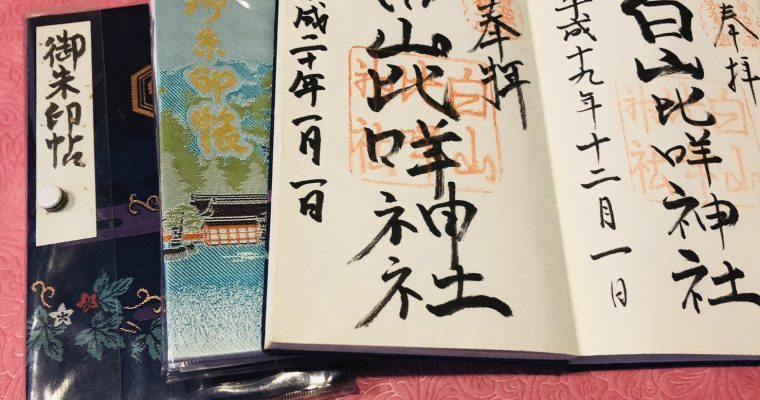 奉拝
白山比咩神社
平成十九年十二月一日
白山
神社
奉拝
白山比咩神社
成二十年一月一日
白山
比咩
神社
御朱印帳
御朱印帖